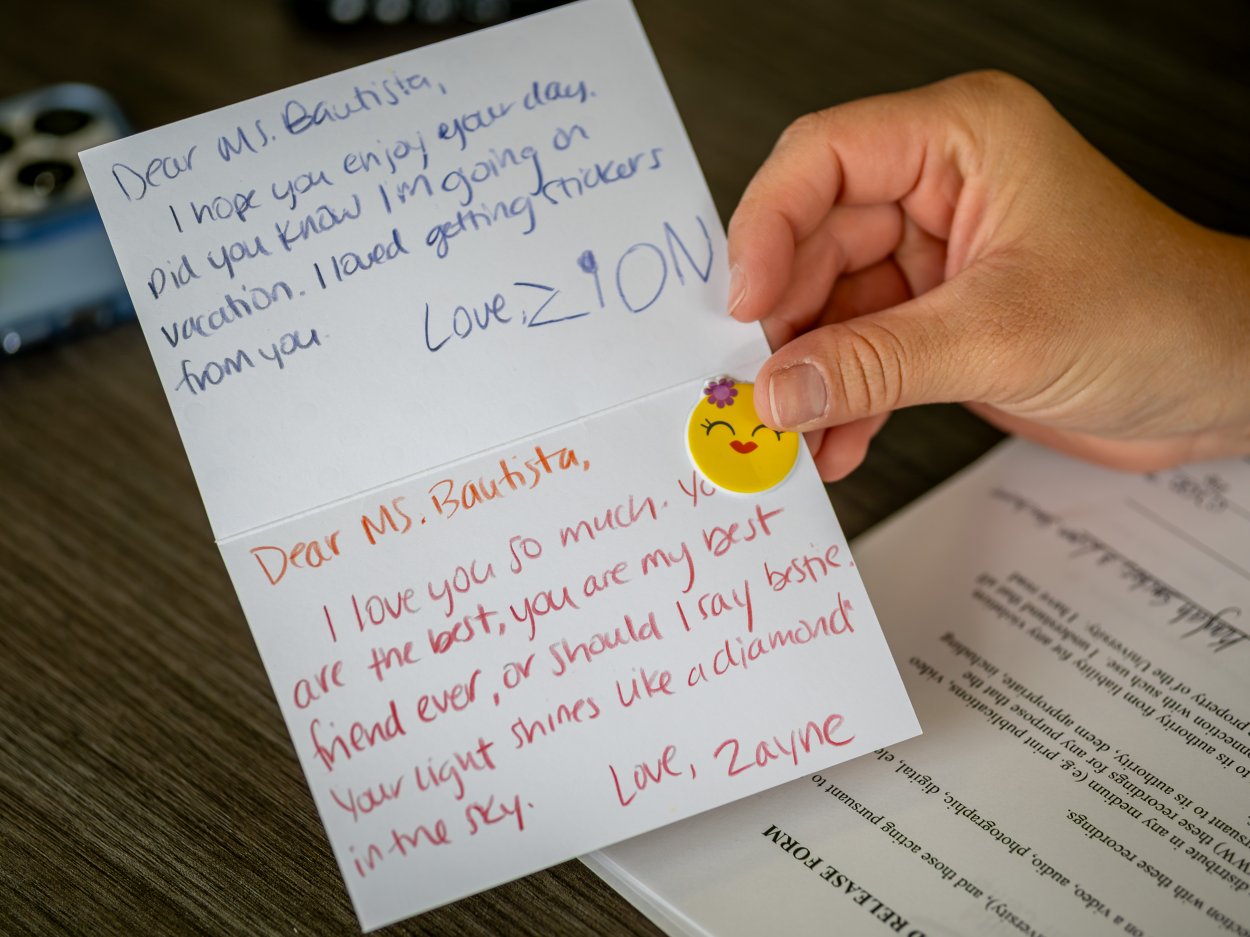 Dear Ms. Bautista,
I hope you enjoy your day.
Did you know I'm going on
vacation. I loved getting stickers
from you.
Love, ZION
Dear Ms. Bautista,
I love you so much. Yo
are the best, you are my best
friend ever, or should I say bestie.
Your light shines like a diamond
in the sky.
Love, Zayne
D RELEASE FORM
versity), and those acting pursuant to
on a video, audio, photographic, digital, ele
ection with these recordings
distribute in any medium (e.g. print publications, video
WW) these recordings for any purpose that the
rsuant to its authority, deem appropriate, including
to its authority from liability for any violation
onnection with such use. I understand that all
property of the University. I have read